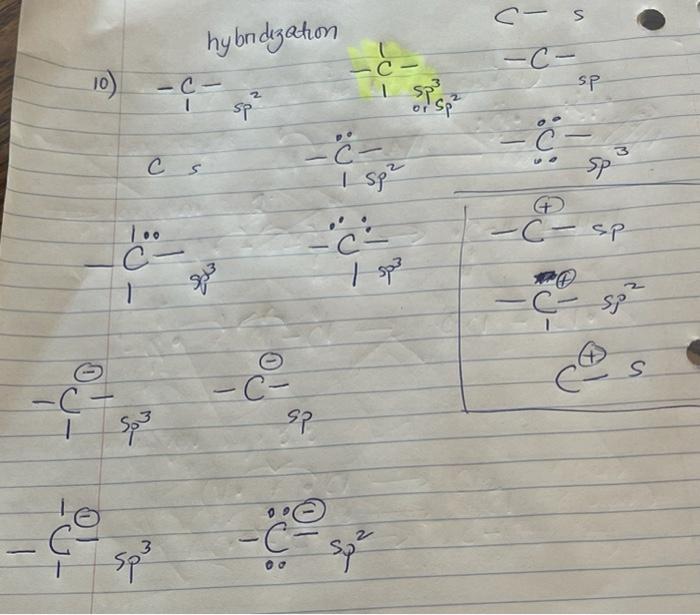 C- s
hybridization
10) -C- sp²
-C- sp³
or sp²
-C- sp
C s
-C- sp²
-C- sp³
-C- sp³
-C- sp³
-C⊕- sp
-C⊕- sp²
C⊕- s
-C⊖- sp³
-C⊖- sp
-C⊖- sp³
-C⊖- sp²